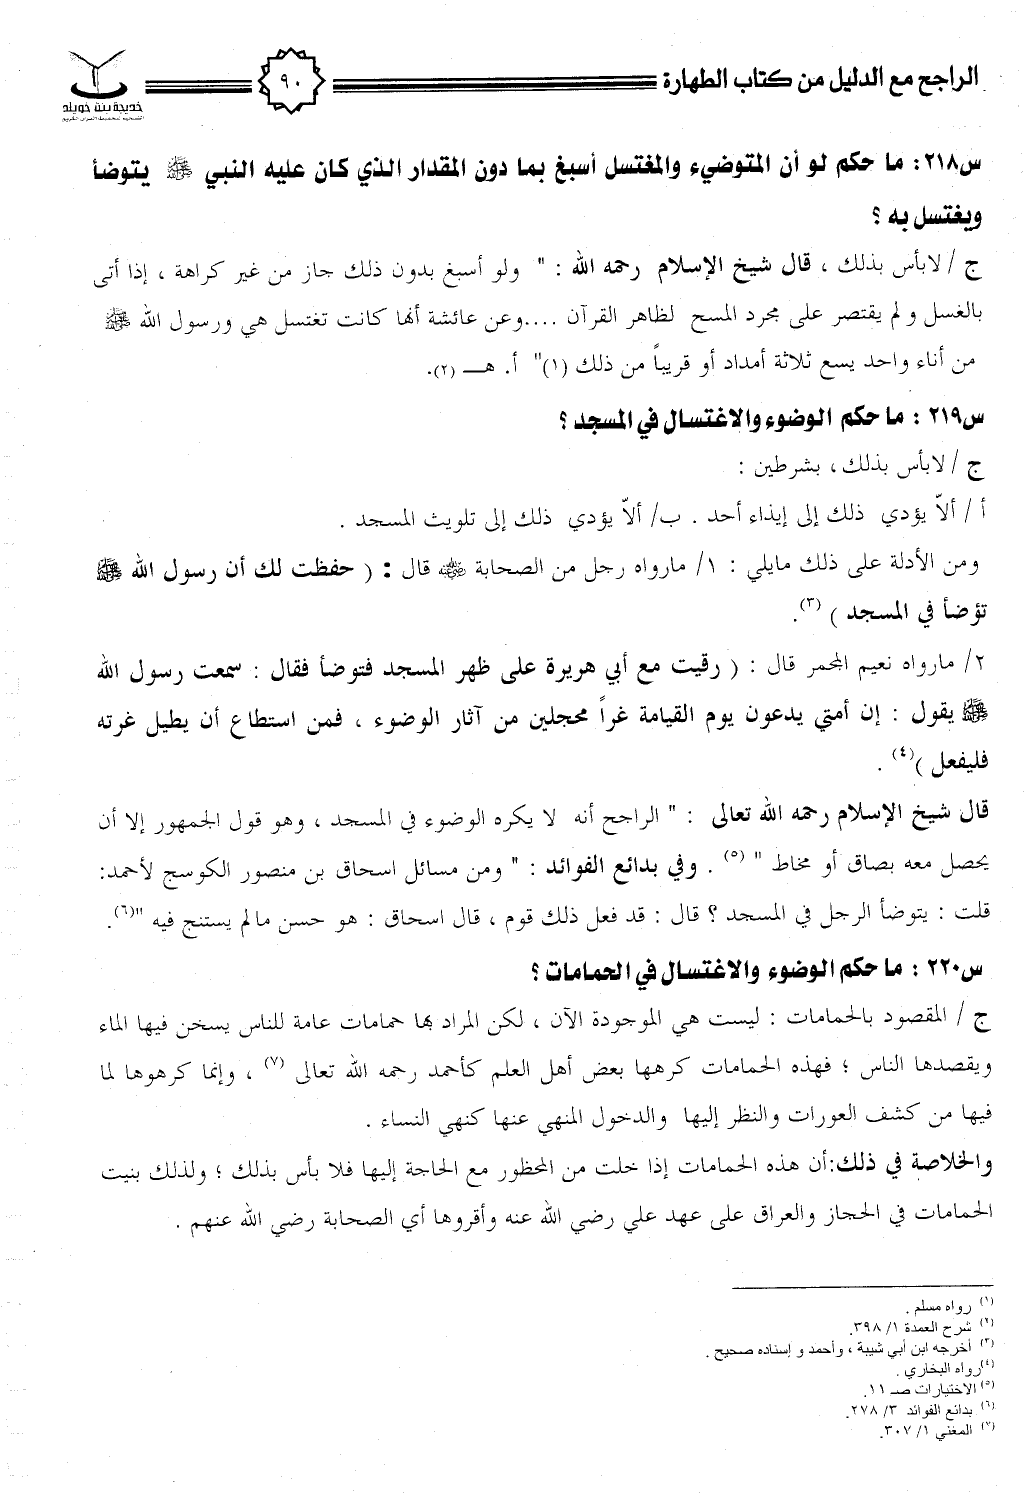 الراجح مع الدليل من كتاب الطهارة
٩٠
خديجة بنت خويلد
س٢١٨: ما حكم لو أن المتوضيء والمغتسل أسبغ بما دون المقدار الذي كان عليه النبي ﷺ يتوضأ
ويغتسل به ؟
ج / لابأس بذلك ، قال شيخ الإسلام رحمه الله : " ولو أسبغ بدون ذلك جاز من غير كراهة ، إذا أتى
بالغسل و لم يقتصر على مجرد المسح لظاهر القرآن ....وعن عائشة أنها كانت تغتسل هي ورسول الله ﷺ
من أناء واحد يسع ثلاثة أمداد أو قريباً من ذلك (١)" أ. هـ (٢).
س٢١٩ : ما حكم الوضوء والاغتسال في المسجد ؟
ج / لابأس بذلك، بشرطين :
أ / ألاّ يؤدي ذلك إلى إيذاء أحد . ب/ ألاّ يؤدي ذلك إلى تلويث المسجد .
ومن الأدلة على ذلك مايلي : ١/ مارواه رجل من الصحابة ﷺ قال : ( حفظت لك أن رسول الله ﷺ
تؤضأ في المسجد ) (٣).
٢/ مارواه نعيم المجمر قال : ( رقيت مع أبي هريرة على ظهر المسجد فتوضأ فقال : سمعت رسول الله
ﷺ يقول : إن أمتي يدعون يوم القيامة غراً محجلين من آثار الوضوء ، فمن استطاع أن يطيل غرته
فليفعل )(٤) .
قال شيخ الإسلام رحمه الله تعالى : " الراجح أنه لا يكره الوضوء في المسجد ، وهو قول الجمهور إلا أن
يحصل معه بصاق أو مخاط " (٥) . وفي بدائع الفوائد : " ومن مسائل اسحاق بن منصور الكوسج لأحمد:
قلت : يتوضأ الرجل في المسجد ؟ قال : قد فعل ذلك قوم ، قال اسحاق : هو حسن مالم يستنج فيه "(٦).
س٢٢٠ : ما حكم الوضوء والاغتسال في الحمامات ؟
ج / المقصود بالحمامات : ليست هي الموجودة الآن ، لكن المراد بها حمامات عامة للناس يسخن فيها الماء
ويقصدها الناس ؛ فهذه الحمامات كرهها بعض أهل العلم كأحمد رحمه الله تعالى (٧) ، وإنما كرهوها لما
فيها من كشف العورات والنظر إليها والدخول المنهي عنها كنهي النساء .
والخلاصة في ذلك:أن هذه الحمامات إذا خلت من المحظور مع الحاجة إليها فلا بأس بذلك ؛ ولذلك بنيت
الحمامات في الحجاز والعراق على عهد علي رضي الله عنه وأقروها أي الصحابة رضي الله عنهم .
(١) رواه مسلم .
(٢) شرح العمدة ١/ ٣٩٨.
(٣) أخرجه ابن أبي شيبة ، وأحمد و إسناده صحيح .
(٤)رواه البخاري .
(٥) الاختيارات صـ ١١.
(٦) بدائع الفوائد ٣/ ٢٧٨.
(٧) المغني ١/ ٣٠٧.